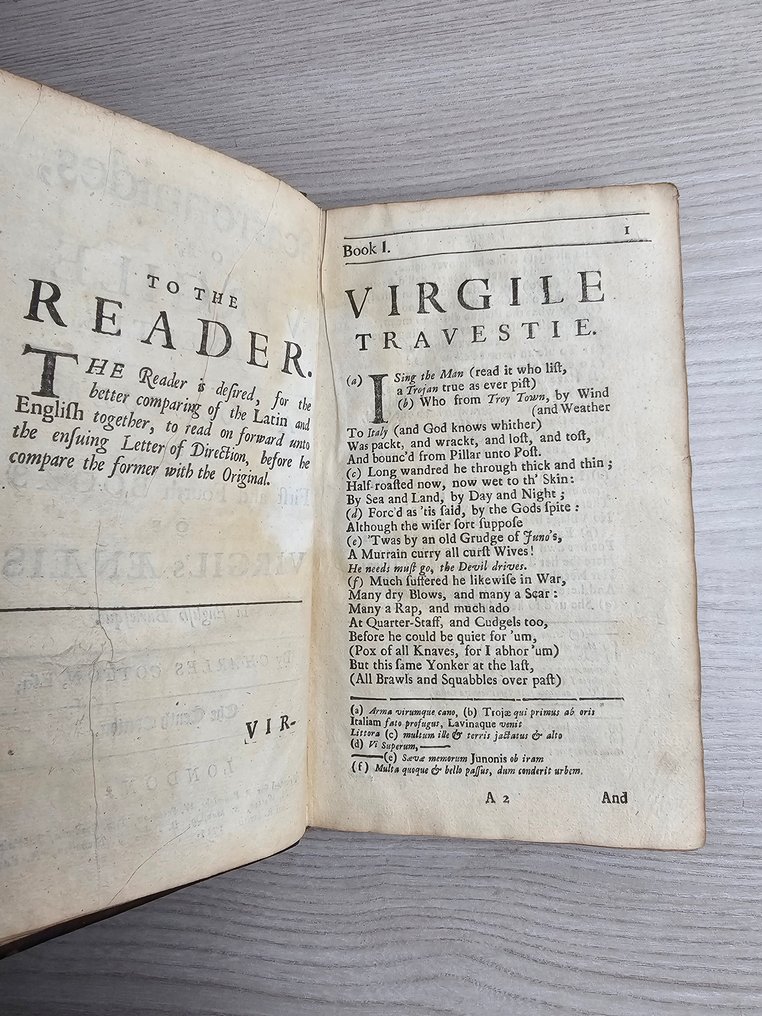 TO THE
READER.
THE Reader is desired, for the
better comparing of the Latin and
Engliſh together, to read on forward unto
the enſuing Letter of Direction, before he
compare the former with the Original.
VIR-
Book I. 1
VIRGILE
TRAVESTIE.
(a) I Sing the Man (read it who liſt,
a Trojan true as ever piſt)
(b) Who from Troy Town, by Wind
(and Weather
To Italy (and God knows whither)
Was packt, and wrackt, and loſt, and toſt,
And bounc'd from Pillar unto Poſt.
(c) Long wandred he through thick and thin;
Half-roaſted now, now wet to th' Skin:
By Sea and Land, by Day and Night;
(d) Forc'd as 'tis ſaid, by the Gods ſpite:
Although the wiſer ſort ſuppoſe
(e) 'Twas by an old Grudge of Juno's,
A Murrain curry all curſt Wives!
He needs muſt go, the Devil drives.
(f) Much ſuffered he likewiſe in War,
Many dry Blows, and many a Scar:
Many a Rap, and much ado
At Quarter-Staff, and Cudgels too,
Before he could be quiet for 'um,
(Pox of all Knaves, for I abhor 'um)
But this ſame Yonker at the laſt,
(All Brawls and Squabbles over paſt)
(a) Arma virumque cano, (b) Trojæ qui primus ab oris
Italiam fato profugus, Lavinaque venit
Littora (c) multum ille & terris jactatus & alto
(d) Vi Superum, ——
——(e) Sævæ memorum Junonis ob iram
(f) Multa quoque & bello paſſus, dum conderit urbem.
A 2 And